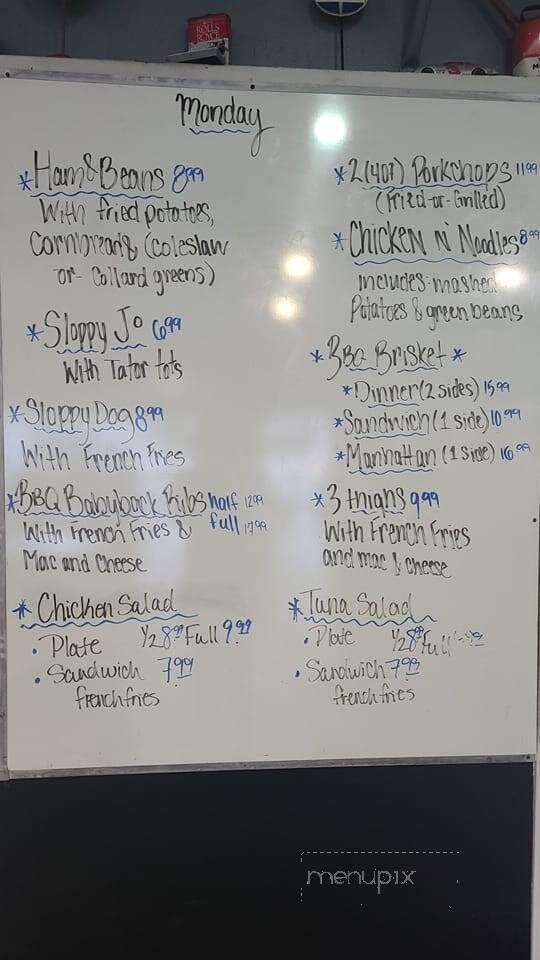 Monday
*Ham & Beans 8.99
With fried potatoes,
Cornbread & (Coleslaw
-or- Collard greens)
*Sloppy Jo 6.99
With Tator tots
*Sloppy Dog 8.99
With French Fries
*BBQ Babyback Ribs half 12.99
full 17.99
With French Fries &
Mac and Cheese
*Chicken Salad
• Plate 1/2 8.99 Full 9.99
• Sandwich 7.99
french fries
*2 (4oz) Porkchops 11.99
(Fried -or- Grilled)
*Chicken N' Noodles 8.99
includes mashed
Potatoes & green beans
*BBQ Brisket*
*Dinner (2 sides) 15.99
*Sandwich (1 side) 10.99
*Manhattan (1 side) 16.99
*3 thighs 9.99
With French Fries
and mac & cheese
*Tuna Salad
• Plate 1/2 8.99 Full
• Sandwich 7.99
french fries
menupix
ROLLS
ROYCE